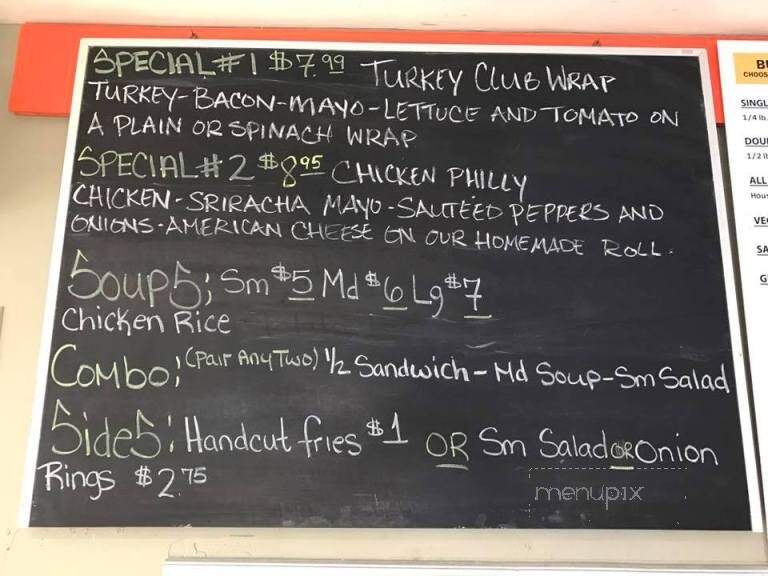 SPECIAL #1 $7.99 TURKEY CLUB WRAP
TURKEY-BACON-MAYO-LETTUCE AND TOMATO ON
A PLAIN OR SPINACH WRAP
SPECIAL #2 $8.95 CHICKEN PHILLY
CHICKEN-SRIRACHA MAYO-SAUTÉED PEPPERS AND
ONIONS-AMERICAN CHEESE ON OUR HOMEMADE ROLL.
Soups; Sm $5 Md $6 Lg $7
Chicken Rice
Combo; (Pair Any Two) 1/2 Sandwich - Md Soup-Sm Salad
Sides: Handcut fries $1 OR Sm Salad OR Onion
Rings $2.75
menupix
CHOOS
SINGL
1/4 lb.
DOU
1/2 lb
ALL
Hous
VE
SA
G